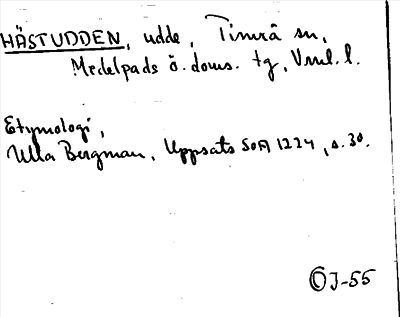 HÄSTUDDEN, udde, Timrå sn,
Medelpads ö. doms. tg, Vnrl. l.
Etymologi,
Ulla Bergman, Uppsats SOFI 1224, s. 30.
© J-55